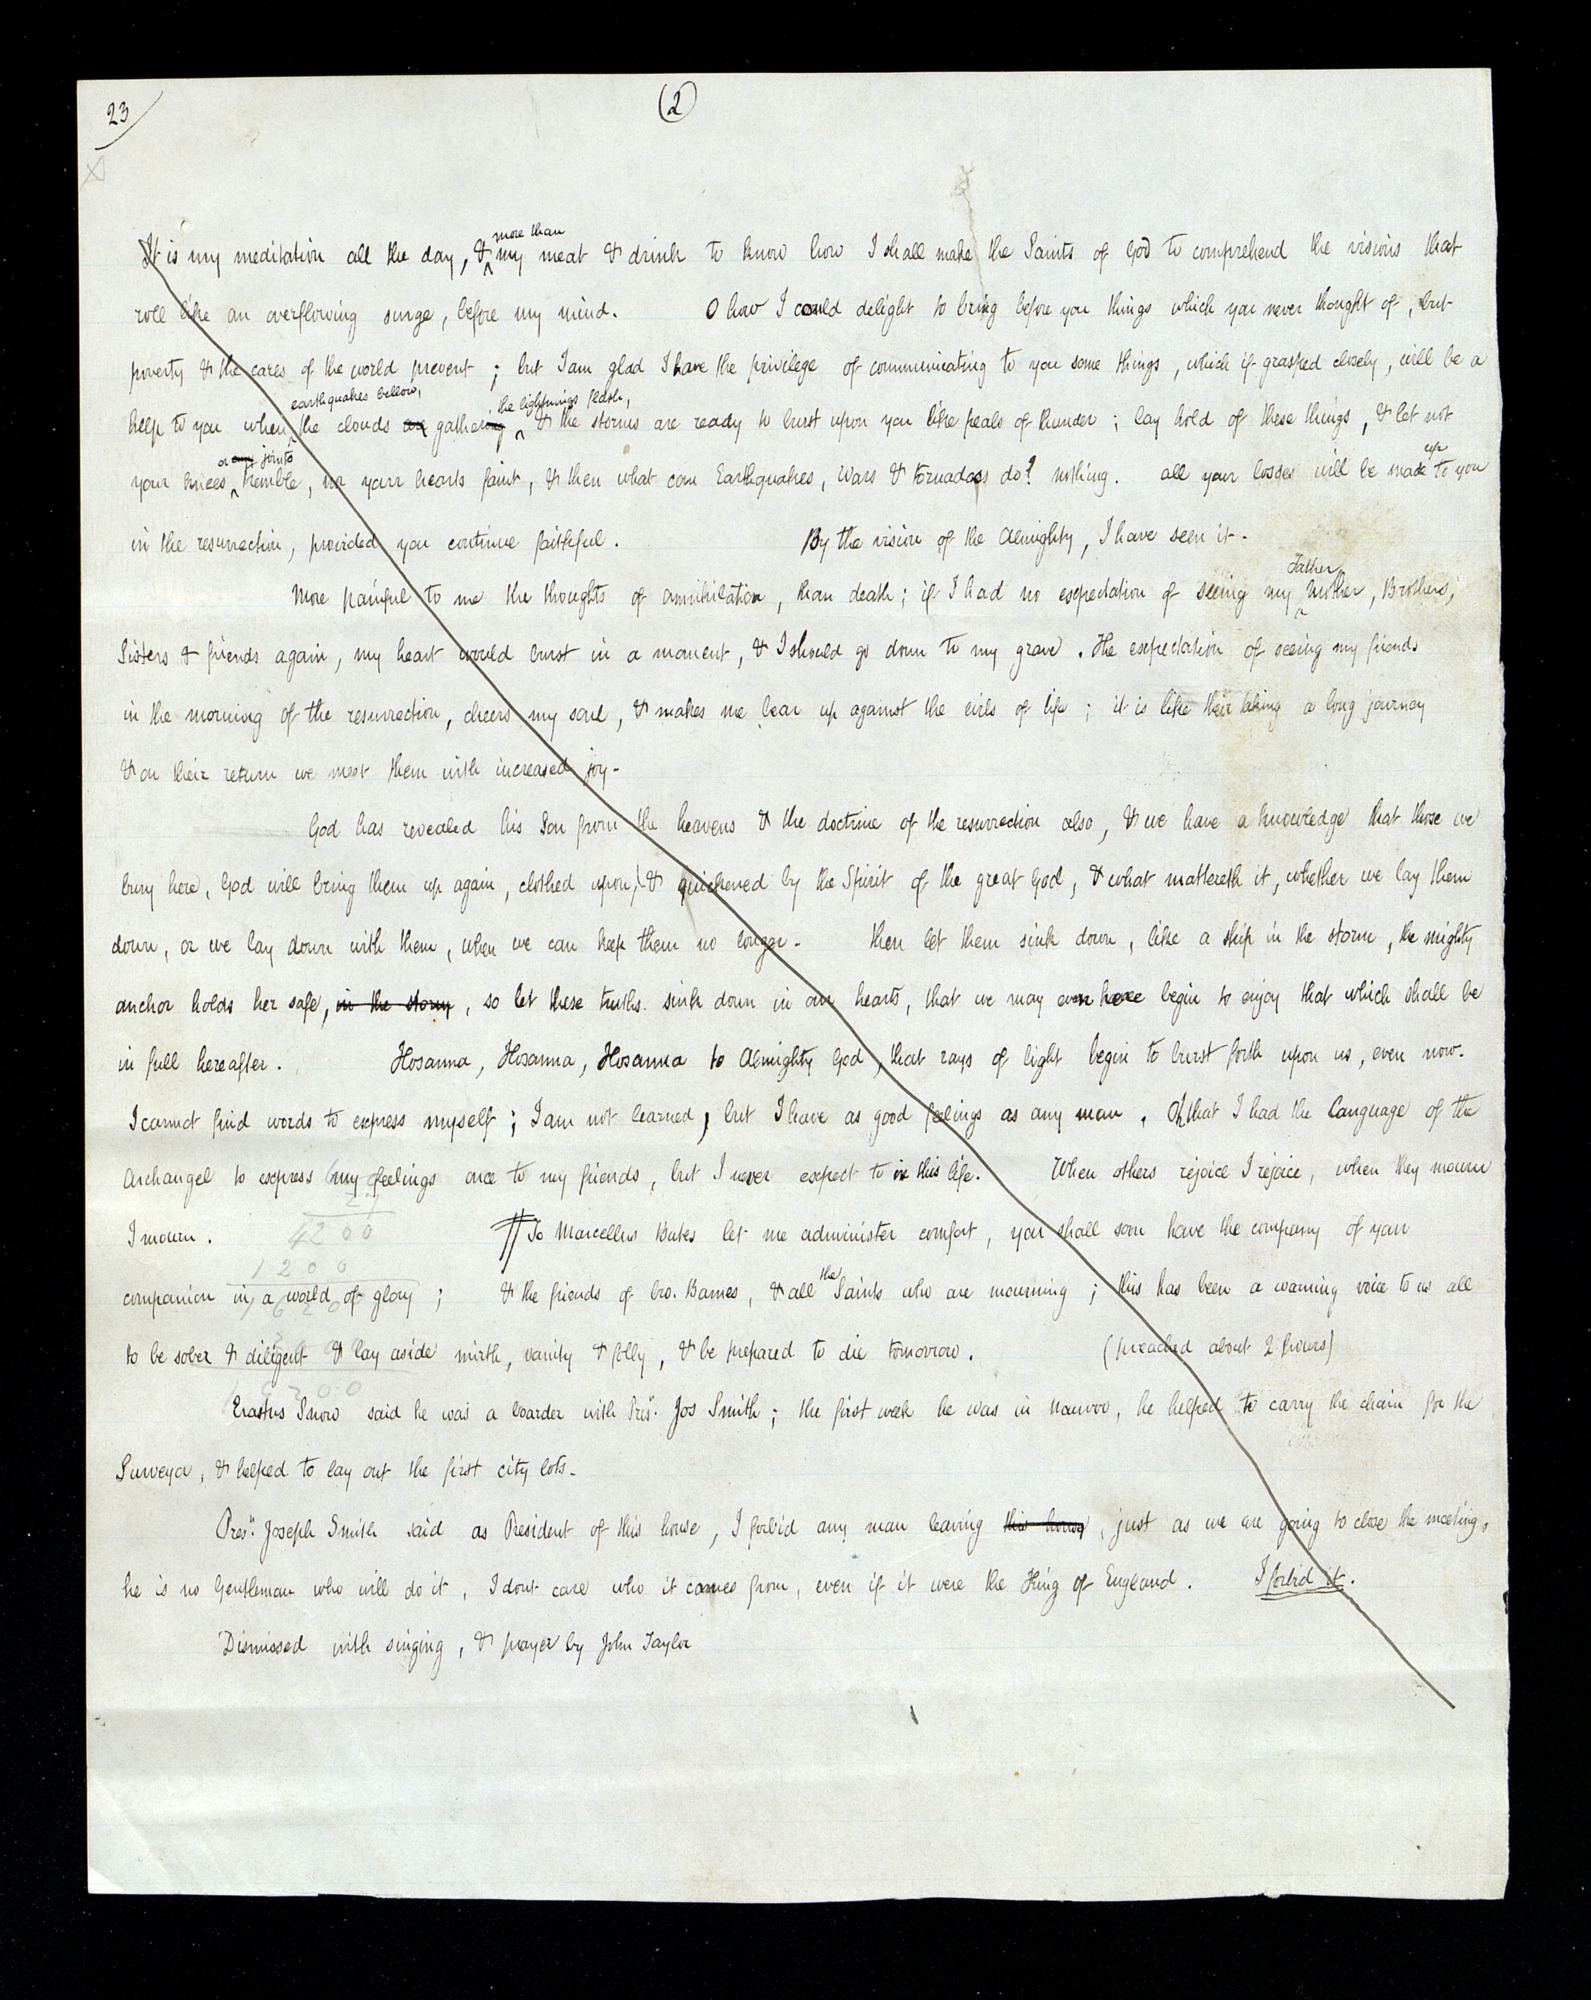 23
(2)
It is my meditation all the day, & more than my meat & drink to know how I shall make the Saints of God to comprehend the visions that
roll like an overflowing surge, before my mind. O how I could delight to bring before you things which you never thought of, but
poverty & the cares of the world prevent; but I am glad I have the privilege of communicating to you some things, which if grasped closely, will be a
help to you when earthquakes bellow, the clouds are gathering the lightnings flash, & the storms are ready to burst upon you like peals of thunder; lay hold of these things, & let not
your knees or any joints tremble, nor your hearts faint, & then what can Earthquakes, wars & tornadoes do? nothing. all your losses will be made up to you
in the resurrection, provided you continue faithful. By the vision of the Almighty, I have seen it-
More painful to me the thoughts of annihilation, than death; if I had no expectation of seeing my Father, mother, Brothers,
Sisters & friends again, my heart would burst in a moment, & I should go down to my grave. The expectation of seeing my friends
in the morning of the resurrection, cheers my soul, & makes me bear up against the evils of life; it is like their taking a long journey
& on their return we meet them with increased joy-
God has revealed his Son from the heavens & the doctrine of the resurrection also, & we have a knowledge that those we
bury here, God will bring them up again, clothed upon, & quickened by the Spirit of the great God, & what mattereth it, whether we lay them
down, or we lay down with them, when we can keep them no longer- then let them sink down, like a ship in the storm, the mighty
anchor holds her safe, in the storm, so let these truths sink down in our hearts, that we may even here begin to enjoy that which shall be
in full hereafter. Hosanna, Hosanna, Hosanna to Almighty God, that rays of light begin to burst forth upon us, even now.
I cannot find words to express myself; I am not learned, but I have as good feelings as any man. Oh that I had the language of the
Archangel to express my feelings once to my friends, but I never expect to in this life. When others rejoice I rejoice, when they mourn
I mourn. To Marcellus Bates let me administer comfort, you shall soon have the company of your
4200
1200
companion in a world of glory; & the friends of bro. Barnes, & all the Saints who are mourning; this has been a warning voice to us all
to be sober & diligent & lay aside mirth, vanity & folly, & be prepared to die tomorrow. (preached about 2 hours)
Erastus Snow said he was a boarder with Prest. Jos Smith; the first week he was in Nauvoo, he helped to carry the chain for the
Surveyor, & helped to lay out the first city lots-
Prest. Joseph Smith said as President of this house, I forbid any man leaving this house, just as we are going to close the meeting,
he is no Gentleman who will do it, I dont care who it comes from, even if it were the King of England. I forbid it.
Dismissed with singing, & prayer by John Taylor